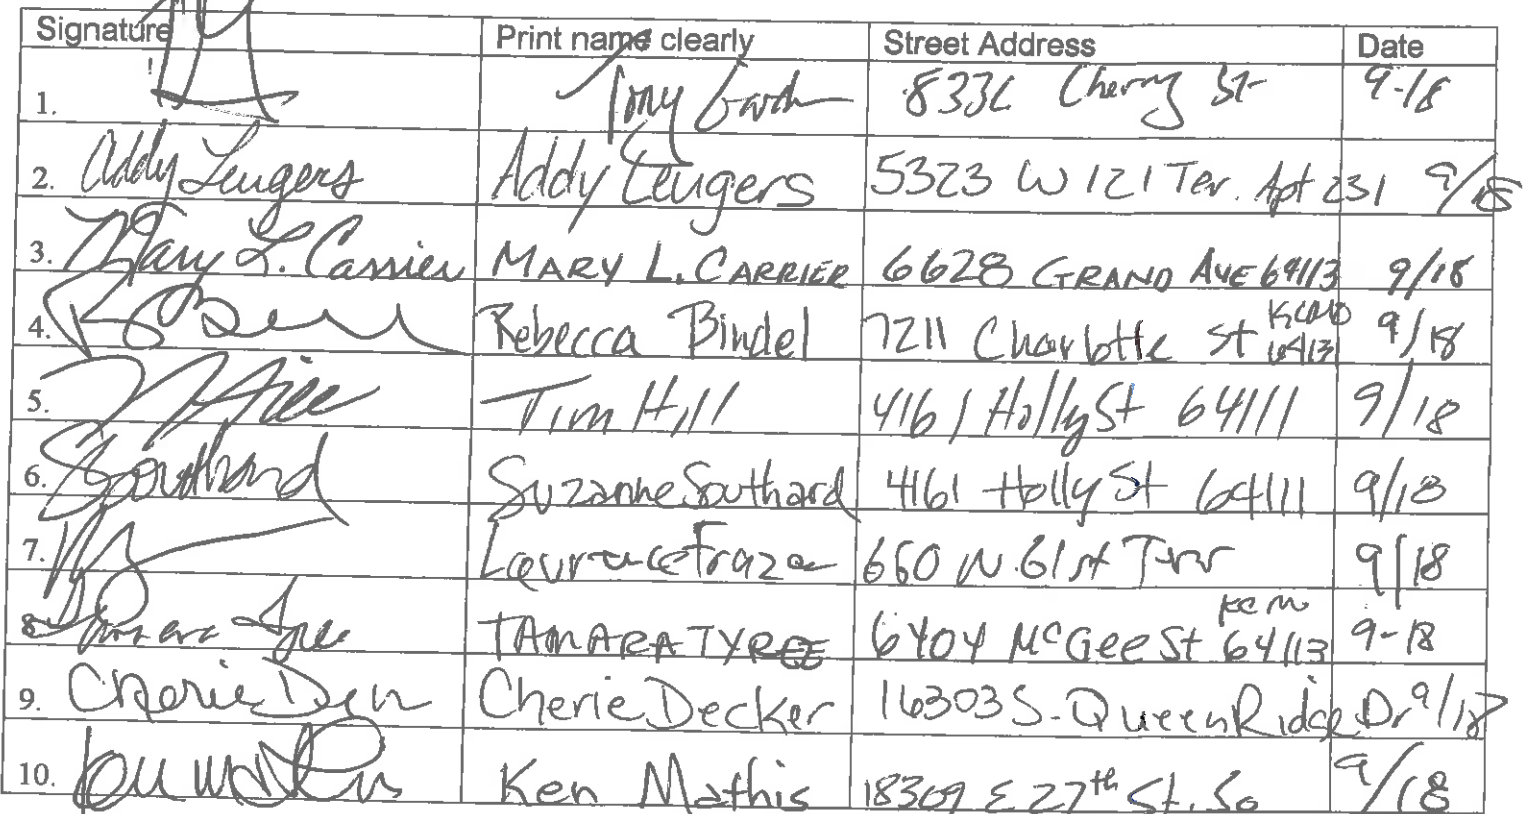 Signature Print name clearly Street Address Date
1. Tony 8336 Cherry St 9-18
2. Addy Leugers Addy Leugers 5323 W 121 Ter. Apt 231 9/18
3. Mary L. Carrier MARY L. CARRIER 6628 GRAND AVE 64113 9/18
4. Rebecca Bindel 7211 Charlotte St KCMO 64131 9/18
5. Tim Hill 4161 Holly St 64111 9/18
6. Southard Suzanne Southard 4161 Holly St 64111 9/18
7. Laurence Frazen 660 W. 61st Terr 9/18
8. Tamara Tyree TAMARA TYREE 6404 McGee St KCM 64113 9-18
9. Cherie Decker 16303 S. Queen Ridge Dr 9/18
10. Ken Mathis 18309 E 27th St. So 9/18